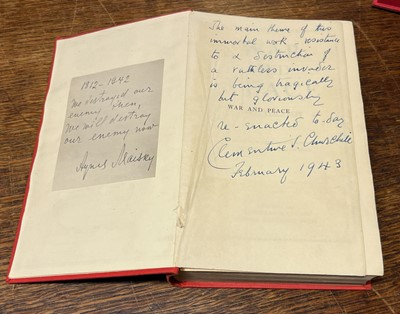 1812-1942
We destroyed our
enemy then,
We will destroy
our enemy now
Agnes Maisky
The main theme of this
immortal work - resistance
to & destruction of
a ruthless invader
is being tragically
but gloriously
WAR AND PEACE
re-enacted to-day
Clementine S. Churchill
February 1943